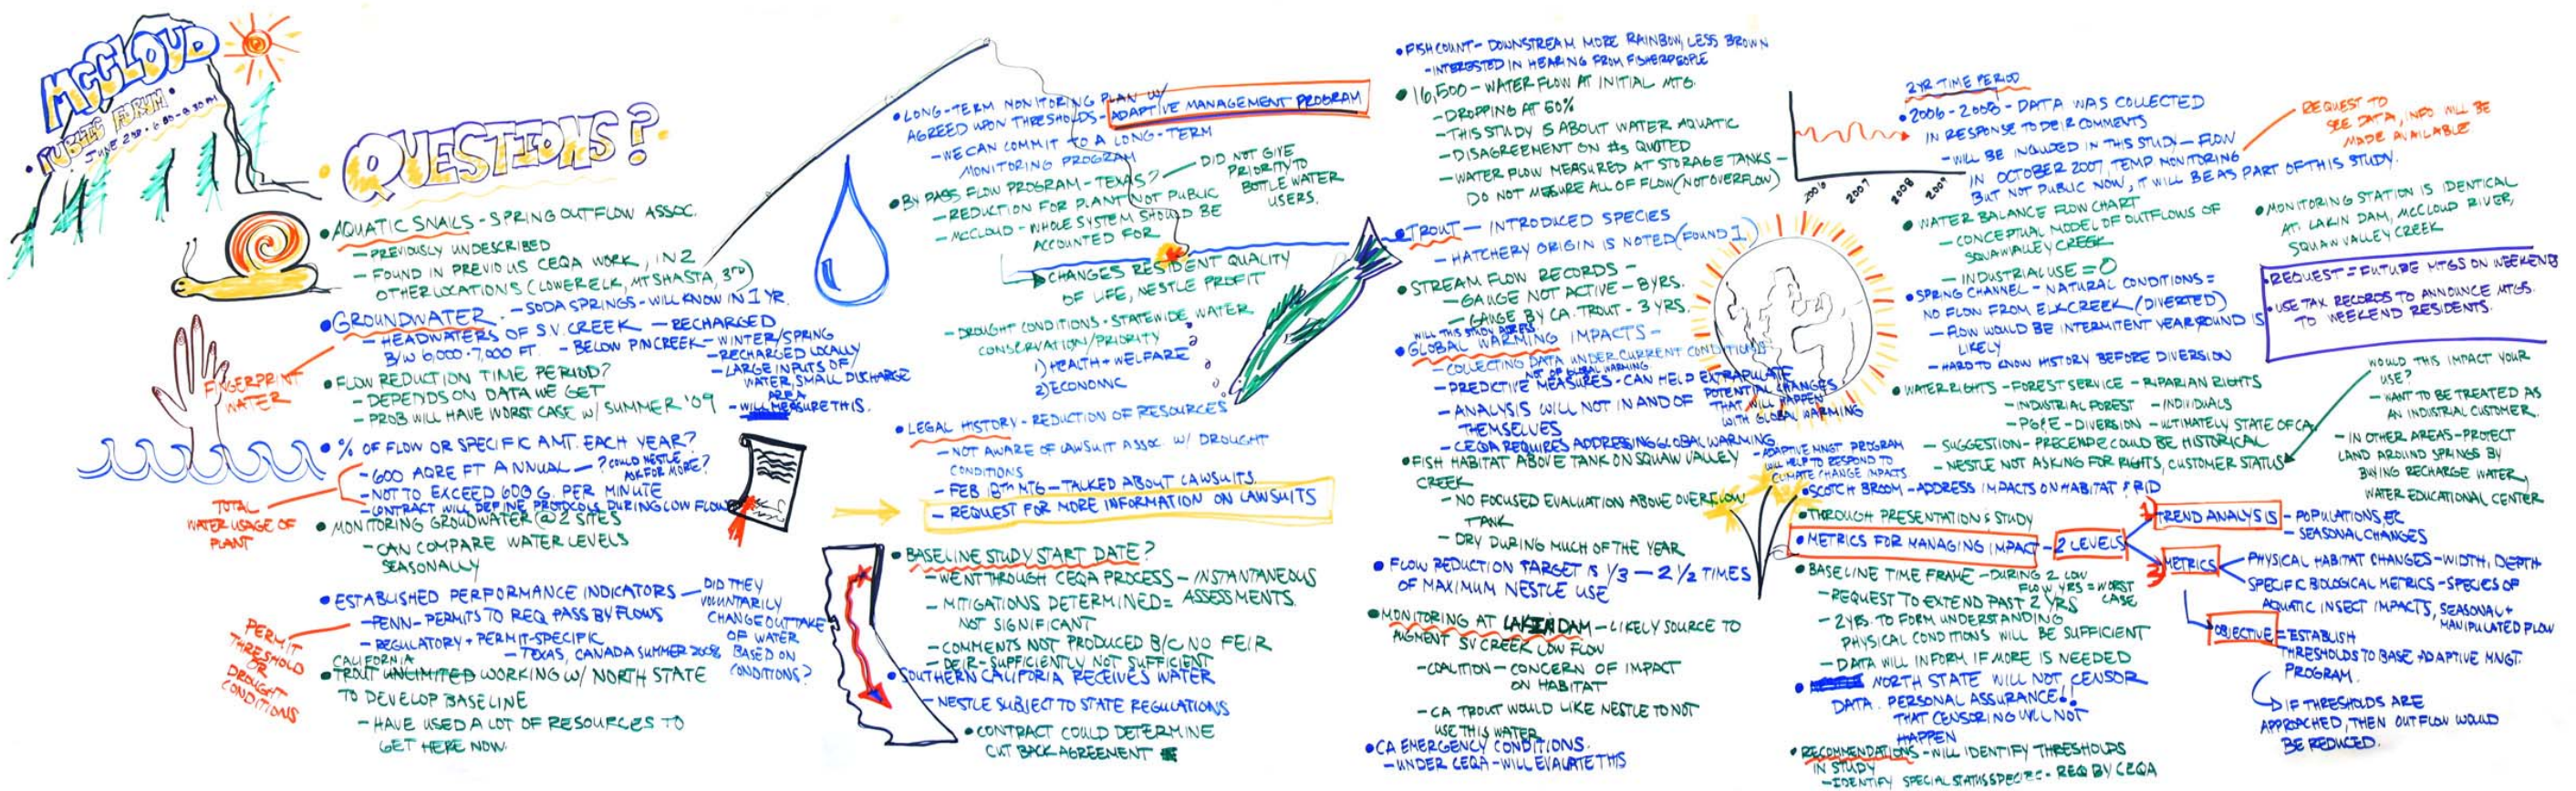 McCLOUD
PUBLIC FORUM
JUNE 2ND · 6:00-8:30 PM
QUESTIONS?
• AQUATIC SNAILS - SPRING OUTFLOW ASSOC.
- PREVIOUSLY UNDESCRIBED
- FOUND IN PREVIOUS CEQA WORK, IN 2
OTHER LOCATIONS (LOWER ELK, MT SHASTA, 3RD)
- SODA SPRINGS - WILL KNOW IN 1 YR.
• GROUNDWATER
- HEADWATERS OF S.V. CREEK - RECHARGED
B/W 6,000-7,000 FT. - BELOW PIN CREEK - WINTER/SPRING
- RECHARGED LOCALLY
- LARGE INPUTS OF
WATER, SMALL DISCHARGE
AREA
- WILL MEASURE THIS.
FINGERPRINT
WATER
• FLOW REDUCTION TIME PERIOD?
- DEPENDS ON DATA WE GET
- PROB WILL HAVE WORST CASE W/ SUMMER '09
• % OF FLOW OR SPECIFIC AMT. EACH YEAR?
- 600 AQRE FT ANNUAL - ? COULD NESTLE
ASK FOR MORE?
- NOT TO EXCEED 600 G. PER MINUTE
- CONTRACT WILL DEFINE PROTOCOLS DURING LOW FLOW
TOTAL
WATER USAGE OF
PLANT
• MONITORING GROUDWATER @ 2 SITES
- CAN COMPARE WATER LEVELS
SEASONALLY
• ESTABLISHED PERFORMANCE INDICATORS
- PENN - PERMITS TO REQ PASS BY FLOWS
- REGULATORY + PERMIT-SPECIFIC
- TEXAS, CANADA SUMMER 2008
DID THEY
VOLUNTARILY
CHANGE OUTTAKE
OF WATER
BASED ON
CONDITIONS?
PERMIT
THRESHOLD
OR
DROUGHT
CONDITIONS
CALIFORNIA
• TROUT UNLIMITED WORKING W/ NORTH STATE
TO DEVELOP BASELINE
- HAVE USED A LOT OF RESOURCES TO
GET HERE NOW.
• LONG-TERM MONITORING PLAN W/
AGREED UPON THRESHOLDS - ADAPTIVE MANAGEMENT PROGRAM
- WE CAN COMMIT TO A LONG-TERM
MONITORING PROGRAM
• BY PASS FLOW PROGRAM - TEXAS?
- REDUCTION FOR PLANT NOT PUBLIC
- MCCLOUD - WHOLE SYSTEM SHOULD BE
ACCOUNTED FOR
DID NOT GIVE
PRIORITY TO
BOTTLE WATER
USERS.
CHANGES RESIDENT QUALITY
OF LIFE, NESTLE PROFIT
- DROUGHT CONDITIONS - STATEWIDE WATER
CONSERVATION/PRIORITY
1) HEALTH + WELFARE
2) ECONOMIC
• LEGAL HISTORY - REDUCTION OF RESOURCES
- NOT AWARE OF LAWSUIT ASSOC. W/ DROUGHT
CONDITIONS
- FEB 18TH MTG - TALKED ABOUT LAWSUITS.
- REQUEST FOR MORE INFORMATION ON LAWSUITS
• BASELINE STUDY START DATE?
- WENT THROUGH CEQA PROCESS - INSTANTANEOUS
ASSESSMENTS.
- MITIGATIONS DETERMINED =
NOT SIGNIFICANT
- COMMENTS NOT PRODUCED B/C NO FEIR
- DEIR - SUFFICIENTLY NOT SUFFICIENT
• SOUTHERN CALIFORIA RECEIVES WATER
- NESTLE SUBJECT TO STATE REGULATIONS
• CONTRACT COULD DETERMINE
CUT BACK AGREEMENT
• FISH COUNT - DOWNSTREAM MORE RAINBOW, LESS BROWN
- INTERESTED IN HEARING FROM FISHERPEOPLE
• 16,500 - WATER FLOW AT INITIAL MTG.
- DROPPING AT 60%
- THIS STUDY IS ABOUT WATER AQUATIC
- DISAGREEMENT ON #S QUOTED
- WATER FLOW MEASURED AT STORAGE TANKS -
DO NOT MEASURE ALL OF FLOW (NOT OVERFLOW)
• TROUT - INTRODUCED SPECIES
- HATCHERY ORIGIN IS NOTED (FOUND 1)
• STREAM FLOW RECORDS -
- GAUGE NOT ACTIVE - 8 YRS.
- GAUGE BY CA. TROUT - 3 YRS.
WILL THIS STUDY ADDRESS
• GLOBAL WARMING IMPACTS -
- COLLECTING DATA UNDER CURRENT CONDITIONS
NOT OF GLOBAL WARMING
- PREDICTIVE MEASURES - CAN HELP EXTRAPULATE
POTENTIAL CHANGES
THAT WILL HAPPEN
WITH GLOBAL WARMING
- ANALYSIS WILL NOT IN AND OF
THEMSELVES
- CEQA REQUIRES ADDRESSING GLOBAL WARMING
- ADAPTIVE MNGT PROGRAM
WILL HELP TO RESPOND TO
CLIMATE CHANGE IMPACTS
• FISH HABITAT ABOVE TANK ON SQUAW VALLEY
CREEK
- NO FOCUSED EVALUATION ABOVE OVERFLOW
TANK
- DRY DURING MUCH OF THE YEAR
• FLOW REDUCTION TARGET IS 1/3 - 2 1/2 TIMES
OF MAXIMUM NESTLE USE
• MONITORING AT LAKIN DAM - LIKELY SOURCE TO
AUGMENT SV CREEK LOW FLOW
- COALITION - CONCERN OF IMPACT
ON HABITAT
- CA TROUT WOULD LIKE NESTLE TO NOT
USE THIS WATER
• CA EMERGENCY CONDITIONS.
- UNDER CEQA - WILL EVALUATE THIS
2006 2007 2008 2009
2 YR TIME PERIOD
• 2006-2008 - DATA WAS COLLECTED
IN RESPONSE TO DEIR COMMENTS
- WILL BE INCLUDED IN THIS STUDY - FLOW
IN OCTOBER 2007, TEMP MONITORING
BUT NOT PUBLIC NOW, IT WILL BE AS PART OF THIS STUDY.
REQUEST TO
SEE DATA, INFO WILL BE
MADE AVAILABLE
• WATER BALANCE FLOW CHART
- CONCEPTUAL MODEL OF OUTFLOWS OF
SQUAW VALLEY CREEK
- INDUSTRIAL USE = 0
• MONITORING STATION IS IDENTICAL
AT LAKIN DAM, MCCLOUD RIVER,
SQUAW VALLEY CREEK
• SPRING CHANNEL - NATURAL CONDITIONS =
NO FLOW FROM ELK CREEK (DIVERTED)
- FLOW WOULD BE INTERMITENT YEAR ROUND IS
LIKELY
- HARD TO KNOW HISTORY BEFORE DIVERSION
• REQUEST = FUTURE MTGS ON WEEKENDS
• USE TAX RECORDS TO ANNOUNCE MTGS.
TO WEEKEND RESIDENTS.
• WATER RIGHTS - FOREST SERVICE - RIPARIAN RIGHTS
- INDUSTRIAL FOREST - INDIVIDUALS
- PG&E - DIVERSION - ULTIMATELY STATE OF CA
- SUGGESTION - PRECENDE COULD BE HISTORICAL
- NESTLE NOT ASKING FOR RIGHTS, CUSTOMER STATUS
WOULD THIS IMPACT YOUR
USE?
- WANT TO BE TREATED AS
AN INDUSTRIAL CUSTOMER.
- IN OTHER AREAS - PROTECT
LAND AROUND SPRINGS BY
BUYING RECHARGE WATER,
WATER EDUCATIONAL CENTER
• SCOTCH BROOM - ADDRESS IMPACTS ON HABITAT & RID
• THROUGH PRESENTATION & STUDY
• METRICS FOR MANAGING IMPACT - 2 LEVELS
1 TREND ANALYSIS - POPULATIONS, EC
- SEASONAL CHANGES
2 METRICS
PHYSICAL HABITAT CHANGES - WIDTH, DEPTH
SPECIFIC BIOLOGICAL METRICS - SPECIES OF
AQUATIC INSECT IMPACTS, SEASONAL +
MANIPULATED FLOW
OBJECTIVE = ESTABLISH
THRESHOLDS TO BASE ADAPTIVE MNGT.
PROGRAM.
IF THRESHOLDS ARE
APPROACHED, THEN OUTFLOW WOULD
BE REDUCED.
• BASELINE TIME FRAME - DURING 2 LOW
FLOW YRS = WORST
CASE
- REQUEST TO EXTEND PAST 2 YRS
- 2 YRS. TO FORM UNDERSTANDING
PHYSICAL CONDITIONS WILL BE SUFFICIENT
- DATA WILL INFORM IF MORE IS NEEDED
• NORTH STATE WILL NOT CENSOR
DATA. PERSONAL ASSURANCE!!
THAT CENSORING WILL NOT
HAPPEN
• RECOMMENDATIONS - WILL IDENTIFY THRESHOLDS
IN STUDY
- IDENTIFY SPECIAL STATUS SPECIES - REQ BY CEQA